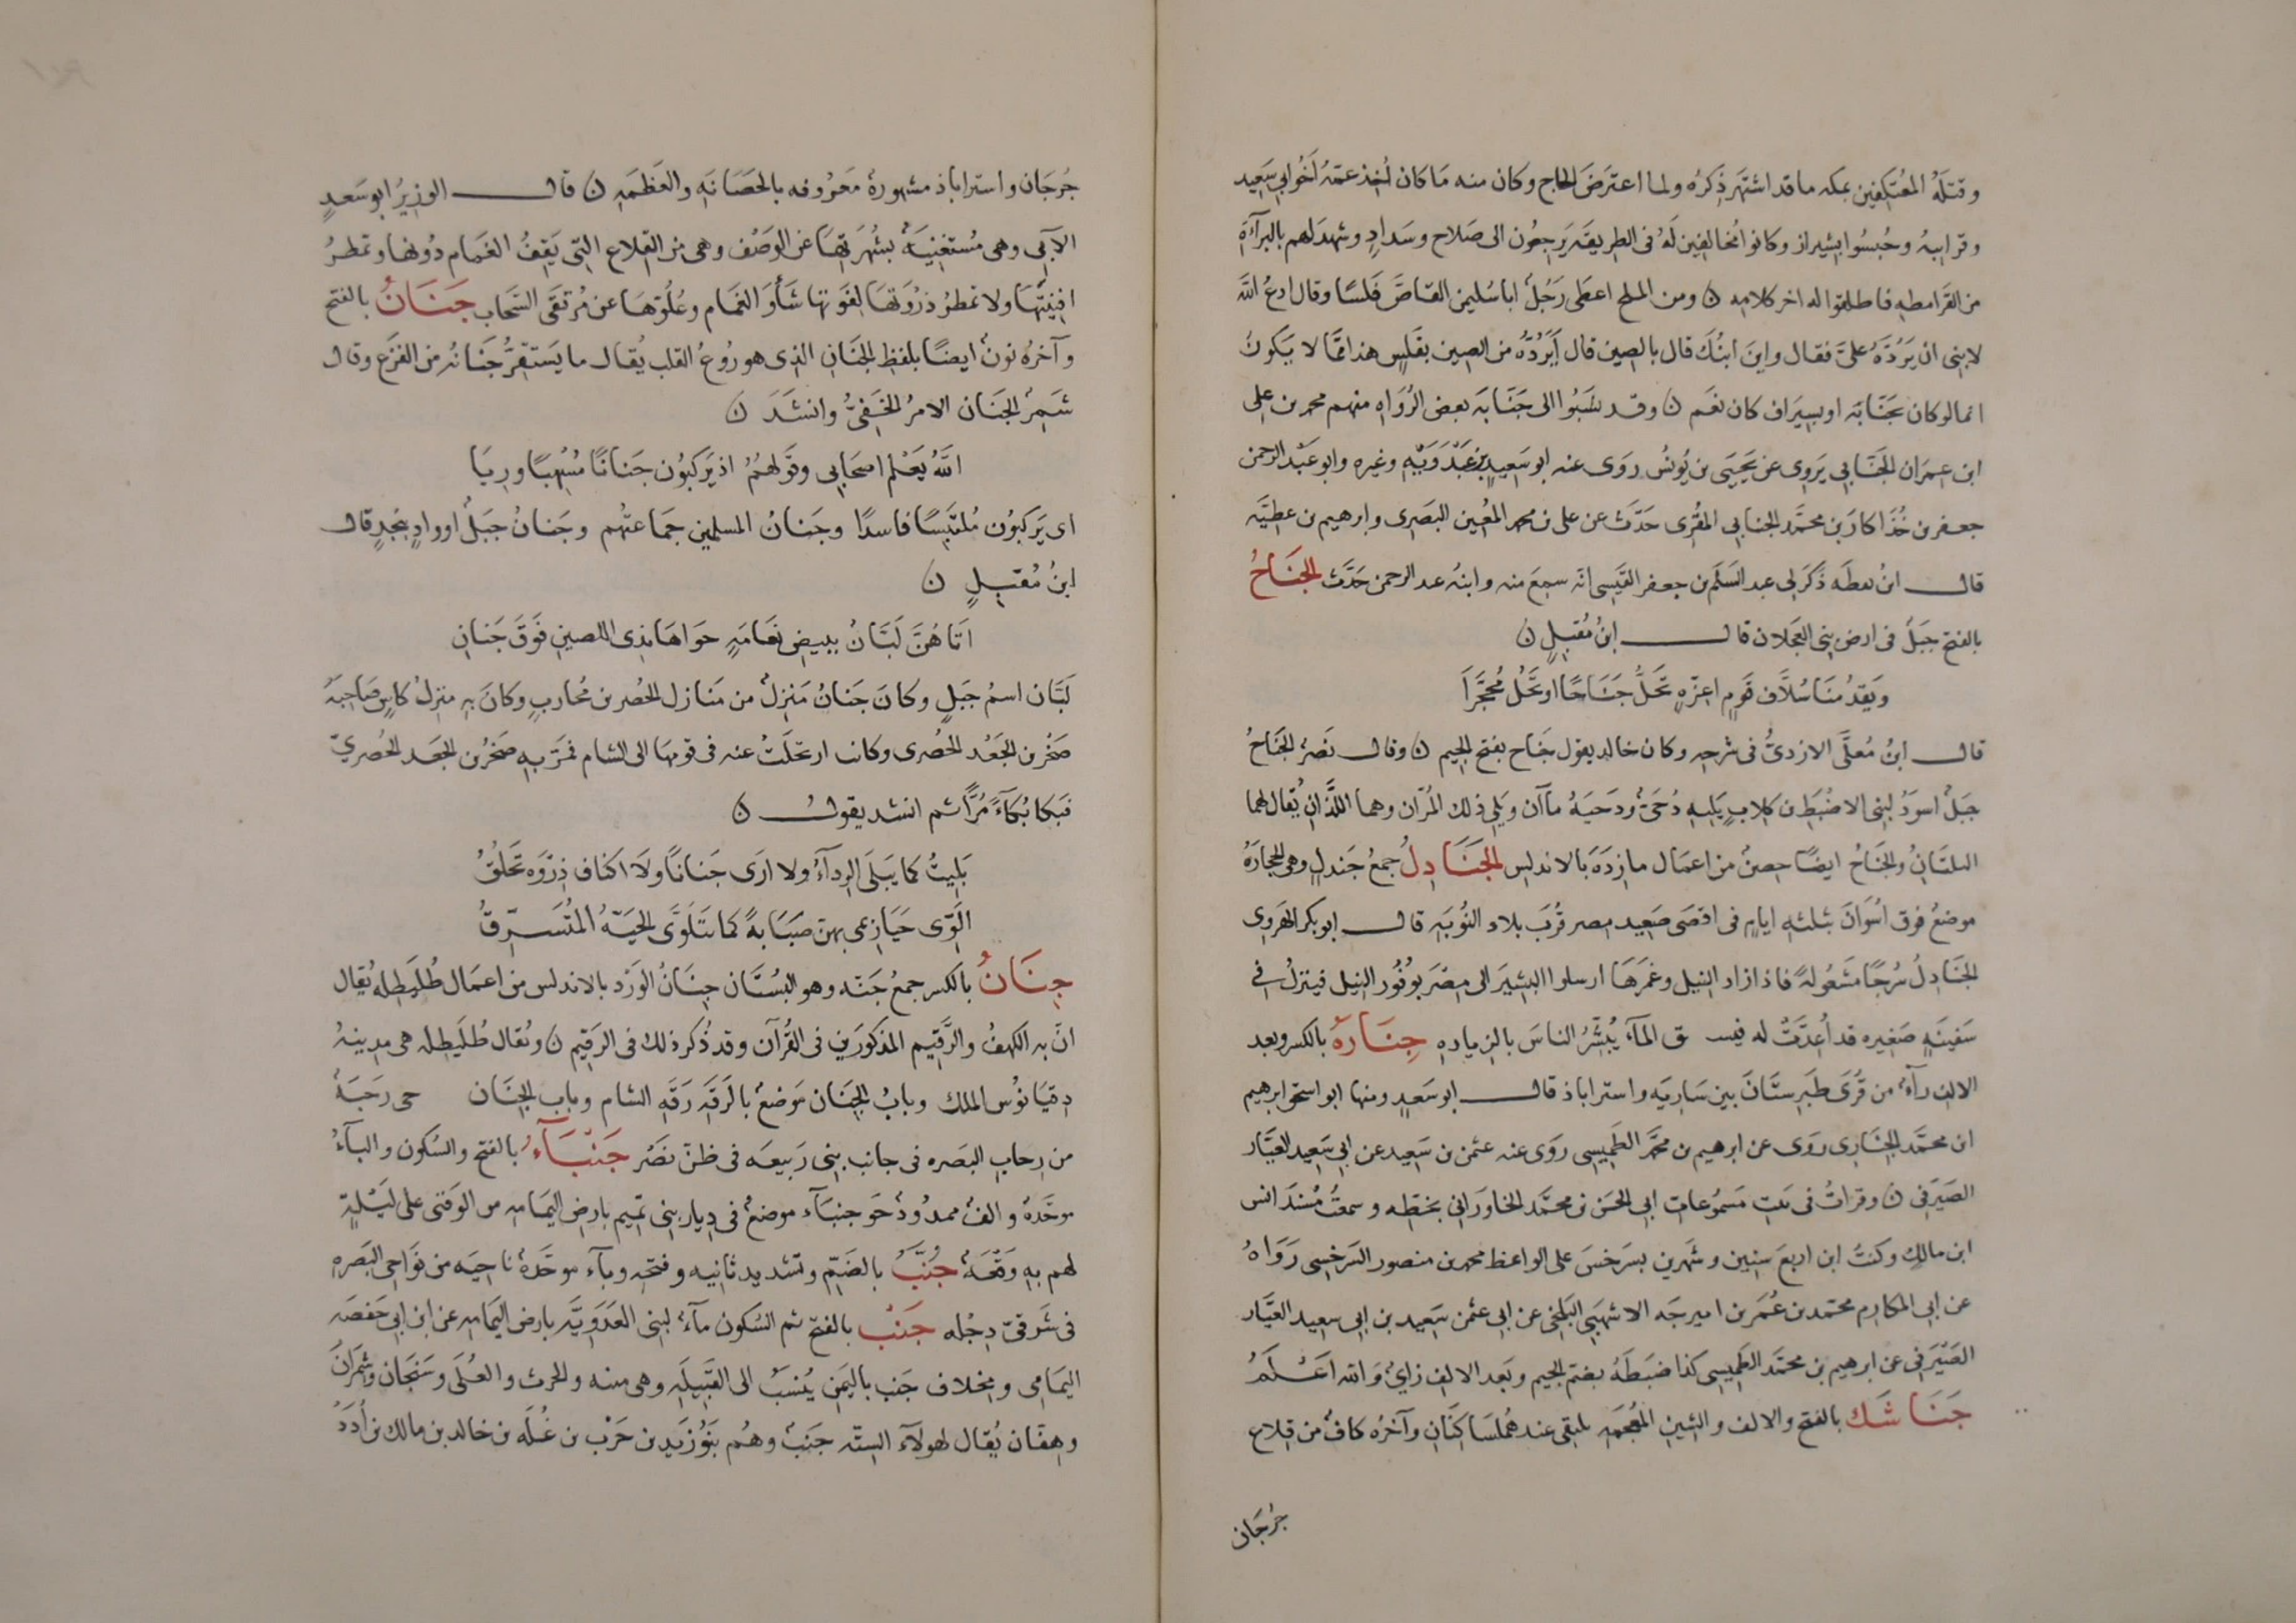 وقتلَهُ المعُتكِفين بمكه ما قد اشتهَر ذِكرُه ولما اعترَضَ الحاج وكان منه مَا كان اُخِذ عمّهُ اَخُو ابي سَعِيد
وقرابيهُ وحُبسُوا بشيراز وكانوا مُخالِفين لَهُ فى الطريقَه يَرجعُون الى صَلاح وسَدادٍ وشهدَ لهم بالبرآءَةِ
من القَرامطهِ فاطلقوا له اخر كلامه ن ومن الملح اعطى رَجُلٌ ابا سُليمن القاصَّ فلسًا وقال ادعُ الله
لابنى ان يَرُدَّهُ علىَّ فقال واينَ ابنُكَ قال بالصين قال أَيَرُدُّه من الصين بفَلسٍ هذا ممَّا لا يَكونُ
انما لو كان بجَنّابَه او بسِيَراف كان نعَم ن وقد نسَبُوا الى جَنّابَه بعض الرُوَاه منهم محمد بن على
ابن عمرَان الجَنّابي يَروِى عن يَحيَى بن يُونسُ روَى عنه ابو سَعِيد بن عَبْدَوَيْهِ وغيره وابو عَبْد الرحمن
جعفر بن خُذَاكار بن محمَّد الجنابي المقرُى حَدّث عن على بن محمد المعُين البَصَرى وابرهيم بن عطيَّه
قال ابنُ نعطَه ذَكَر لى عبد السَلَم بن جعفر القيَسى انّه سمعَ منه وابنهُ عبد الرحمن حَدَّث الجَنَاحُ
بالفتح جَبَلٌ فى ارض بنى العَجَلان قال ابنُ مُقبِلٍ ن
وَيَقدُمنَا سُلاَّف قَومٍ اعِزّهٍ تَحَلُّ جَنَاحًا او تَحُلُّ مُحَجَّرَا
قال ابنُ مُعلَّى الازدىُّ فى شرحه وكان خالد يقول جَنَاح بفتح الجيم ن وقال نَصرُ الجَنَاحُ
جَبَلٌ اسوَدُ لبنى الاضُبَط بن كلابٍ يَليهِ دُحَىٌّ ودَحَيهُ مآآن ويَلِى ذلك المُرّان وهما اللَّذَانِ يُقال لهما
التليَانُ والجَنَاحُ ايضًا حِصنٌ من اعمَال مازدَه بالاندلس الجَنَادِلُ جمعُ جَندلٍ وهى الحجارَهُ
موضعُ فوق اسُوَانَ بثلثهِ ايامٍ فى اقصَى صَعِيد مصر قُربَ بلاد النُوبَهِ قال ابو بكر الهَروى
الجَنَادِلُ سُرجًا مَشعُولهً فاذا زاد النيل وغَمَرَهَا ارسلوا البشيَر الى مِصَر بوُفُور النِيل فينزلُ فى
سَفينَهٍ صَغِيره قد أُعِدَّتْ له فيسـ ق المآءَ يُبشّرُ الناسَ بالزيادهِ جِنَارَهُ بالكسر وبعد
الالف رآءٌ من قُرَى طَبَرِستَانَ بين سَاريَه واستراباذ قال ابو سَعدٍ ومنها ابو اسحق ابرهيم
ابن محمَّد الجِنَارِى روَى عن ابرهيم بن محمَّد الطَمِيسِى روَى عنه عثمن بن سَعِيد عن ابى سَعِيد العَيَّار
الصَيَرفى ن وقراتُ فى ثبت مَسمُوعات ابى الحَسَن بن محمَّد الخاوَرانى بخطّه وسمعتُ مُسْنَدَ انس
ابن مالكٍ وكنتُ ابن اربعَ سنِين وشَهرين بسَرخسَ على الواعظ محمد بن منصور السَرخسى رَوَاهُ
عن ابى المكارم محمّد بن عُمَر بن اميرجَه الاشهَبِى البَلخى عن ابى عثمن سَعِيد بن ابى سعِيد العَيَّار
الصَيْرَفى عن ابرهيم بن محمَّد الطَمِيسى كذا ضبَطَهُ بضم الجيم وبَعد الالف زاىٌ وَالله اعْلَمُ
جَنَاشَك بالفتح والالف والشين المعُجمَه يلتقى عندهُما سَاكنَان وآخرُه كافٌ من قِلاع
جُرجَان
جُرجَان واستراباذ مشهورةٌ مَعرُوفه بالحَصَانَهِ والعَظمَهِ ن قال الوَزيُر ابو سَعدٍ
الآبي وهى مُستغنِيَهٌ بشُهرَتهَا عن الوَصْف وهى من القِلاع التى يَقِفُ الغَمَام دُونها وتمطُرُ
افِنِيَتهَا ولا تمطرُ ذرُوَتهَا لفَوتها شَأوَ الغمَام وعُلُوّهَا عن مُرتقَى السَّحاب جَنَانُ بالفتح
وآخرُهُ نونٌ ايضًا بلفظ الجَنَانِ الذى هو رُوعُ القلب يُقال ما يَستقِرُّ جَنَانُه من الفزَع وقال
شَمِرُ الجَنَان الامرُ الخَفىُّ وانشَدَ ن
اللهُ يَعْلَم اصحَابى وقوَلهُمُ اذ يَركبُون جَنانًا مُسْهَبًا ورِيَا
اى يَركبُون مُلتَبِسًا فاسدًا وجَنانُ المسلمين جَماعتُهم وجَنانُ جبَلٌ او وادٍ بنجدٍ قال
ابنُ مُقبِلٍ ن
اَتاهُنَّ لَبَّانُ ببيضِ نَعَامَهٍ حوَاها بذى اللصبين فَوَقَ جَنانِ
لَبَّان اسمُ جَبَلٍ وكانَ جَنانُ مَنزِلٌ من مَنازل الحُضر بن مُحاربٍ وكانَ بهِ منزلُ كاسٍ صَاحِبَهِ
صَخرُ بن الجَعُد الحُضرى وكانت ارتحَلَتْ عنه فى قومِهَا الى الشام فمَرَّ بهِ صَخرُ بن الجَعَد الحُضرِيّ
فبَكا بُكآءً مُرًّا ثم انشد يقولُ ن
بَلِيتُ كما يَبلَى الرِدآءُ ولا ارَى جَنانًا ولَا اكناف ذِرْوَه تَخلُقُ
اَلَوِّى حَيَازِيمى بهن صَبَابةً كما تتَلَوَّى الحَيَّهُ المتُشَرِّقُ
جِنَانُ بالكسر جمعُ جَنّه وهو البُسْتَان جِنَانُ الوَرْد بالاندلس من اعمَال طُلَيطله يُقال
انّ به الكهفُ والرَّقِيم المذكورَين فى القُرآن وقد ذُكر ذلك فى الرَقيم ن ويُقال طُلَيطله هى مدينهُ
دِقيَانوُس الملك وبابُ الجِنَان مَوضعُ بالرَقَه رَقَهِ الشام وباب الجِنَان حى رَحَبَهُ
من رِحابِ البَصَره فى جانب بنِى رَبِيعَه فى ظنّ نصُر جَنْبَآءُ بالفتح والسُكون والبآءُ
موحَّدهٌ والفٌ ممدُودٌ حَو جنبَآء موضعٌ فى دِيار بنى تميم بارض اليَمَامهِ من الوَقبَى على لَيْلهٍ
لهم به وَقْعَهٌ جُنَّبُ بالضَمّ وتشديد ثانِيهِ وفتحهِ وبآء موحَّدةٌ ناحِيَه من نوَاحى البَصَرهِ
فى شَرقىّ دِجْله جَنْب بالفتح ثم السُكون مآءٌ لبنى العَدَويَّه بارض اليَمَامه عن ابن ابى حَفصَه
اليَمَامى ومِخلاف جَنب باليَمن يُنسَبُ الى القبِيلَهِ وهى منبه والحرث والغَلَى وسَنَحَان وشِمرَانَ
وهِفّان يُقال لهولآءِ الستّه جَنبٌ وهُم بَنُوْ يَزيد بن حَرْب بن عُلَه بن خالد بن مالك بن اُدَدَ